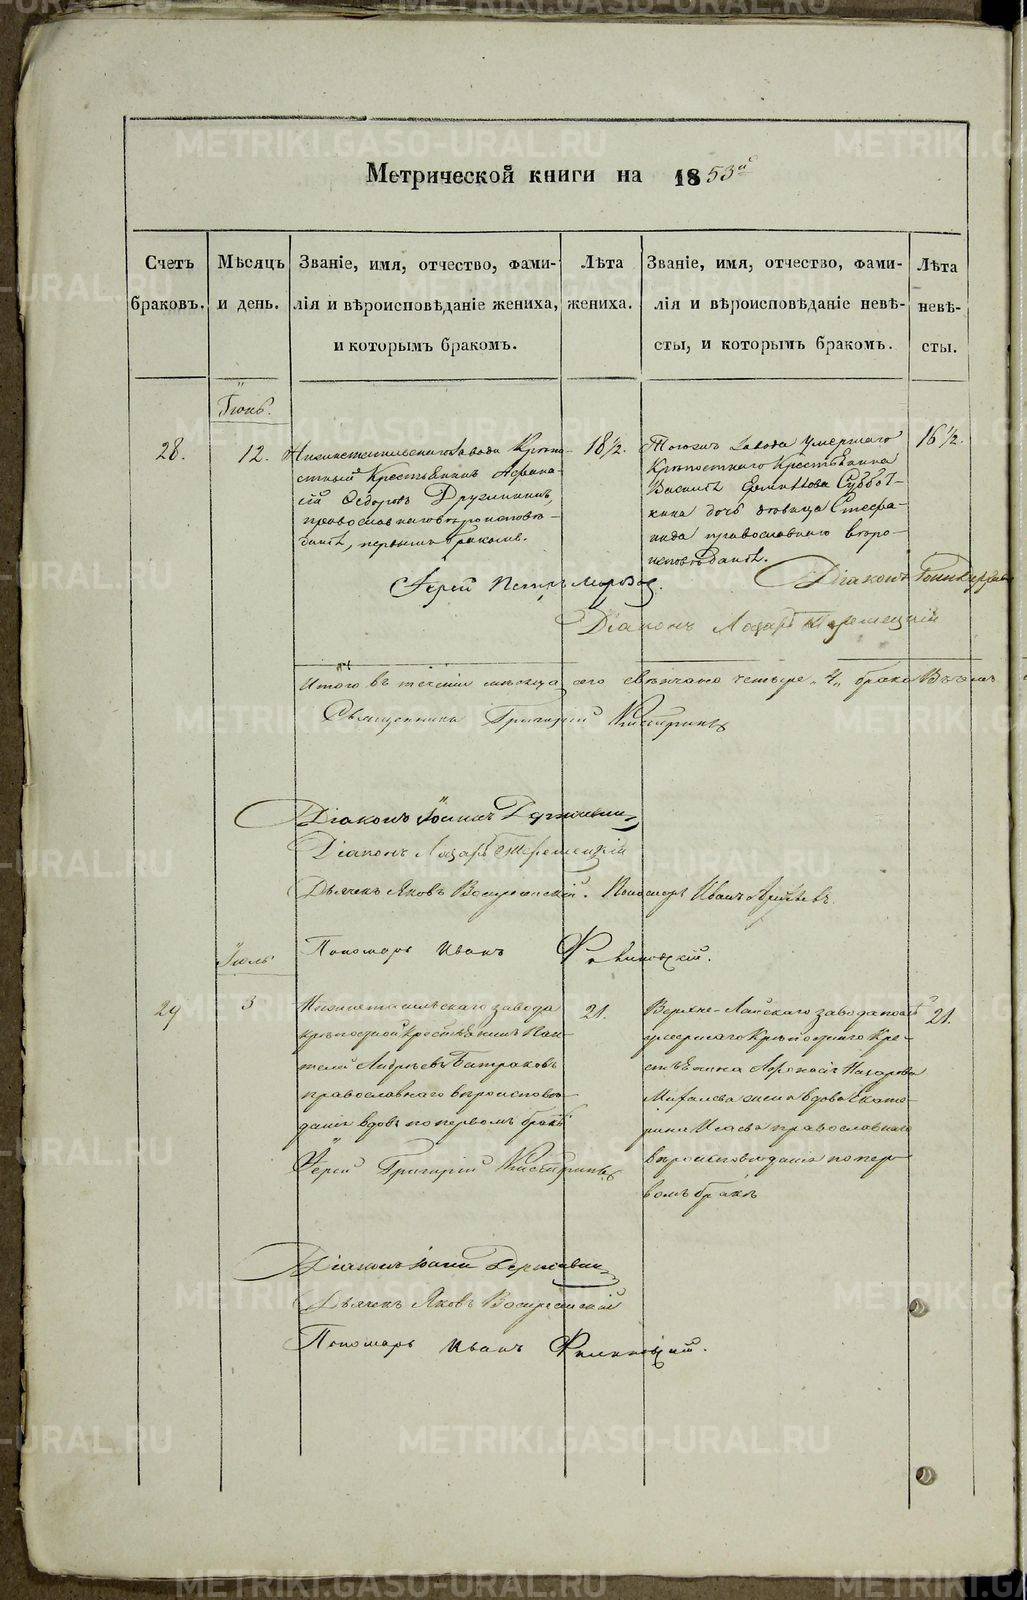 Метрической книги на 1853й
Счетъ браковъ.
Мѣсяцъ и день.
Званіе, имя, отчество, фами-
лія и вѣроисповѣданіе жениха,
и которымъ бракомъ.
Лѣта жениха.
Званіе, имя, отчество, фами-
лія и вѣроисповѣданіе невѣ-
сты, и которымъ бракомъ.
Лѣта невѣ-
сты.
Іюнь.
28.
12.
Нижнетагильскаго завода Крѣпо-
стный Крестьянинъ Афана-
сій Ѳедоровъ Дружининъ,
православнаго вѣроисповѣ-
данія, первымъ бракомъ.
18 1/2.
Тогожъ завода умершаго
Крѣпостнаго Крестьянина
Василья Суббот-
кина дочь дѣвица Стефа-
нида православнаго вѣро-
исповѣданія.
16 1/2.
Іерей Петръ Морозов.
Діаконъ
Діаконъ Лазарь
Итого въ теченіи мѣсяца сего свѣнчано четыре „4„ брака
Священникъ Григорій
Діаконъ Іоаннъ Державин
Діаконъ Лазарь
Дьячекъ Яковъ Воскресенскій. Пономарь Иванъ
Пономарь Иванъ
Іюль
29
3
Нижнетагильскаго завода
крѣпостной крестьянинъ Пан-
телей Андреевъ Батраковъ
православнаго вѣроисповѣ-
данія вдовъ по первомъ бракѣ
21.
Верхне-Лайскаго завода
умершаго Крѣпостнаго Кре-
стьянина Афанасія Назарова
жена вдова Екате-
рина Исаева православнаго
вѣроисповѣданія по пер-
вомъ бракѣ
21.
Іерей Григорій
Діаконъ Іоаннъ Державин
Дьячекъ Яковъ Воскресенскій
Пономарь Иванъ
METRIKI.GASO-URAL.RU